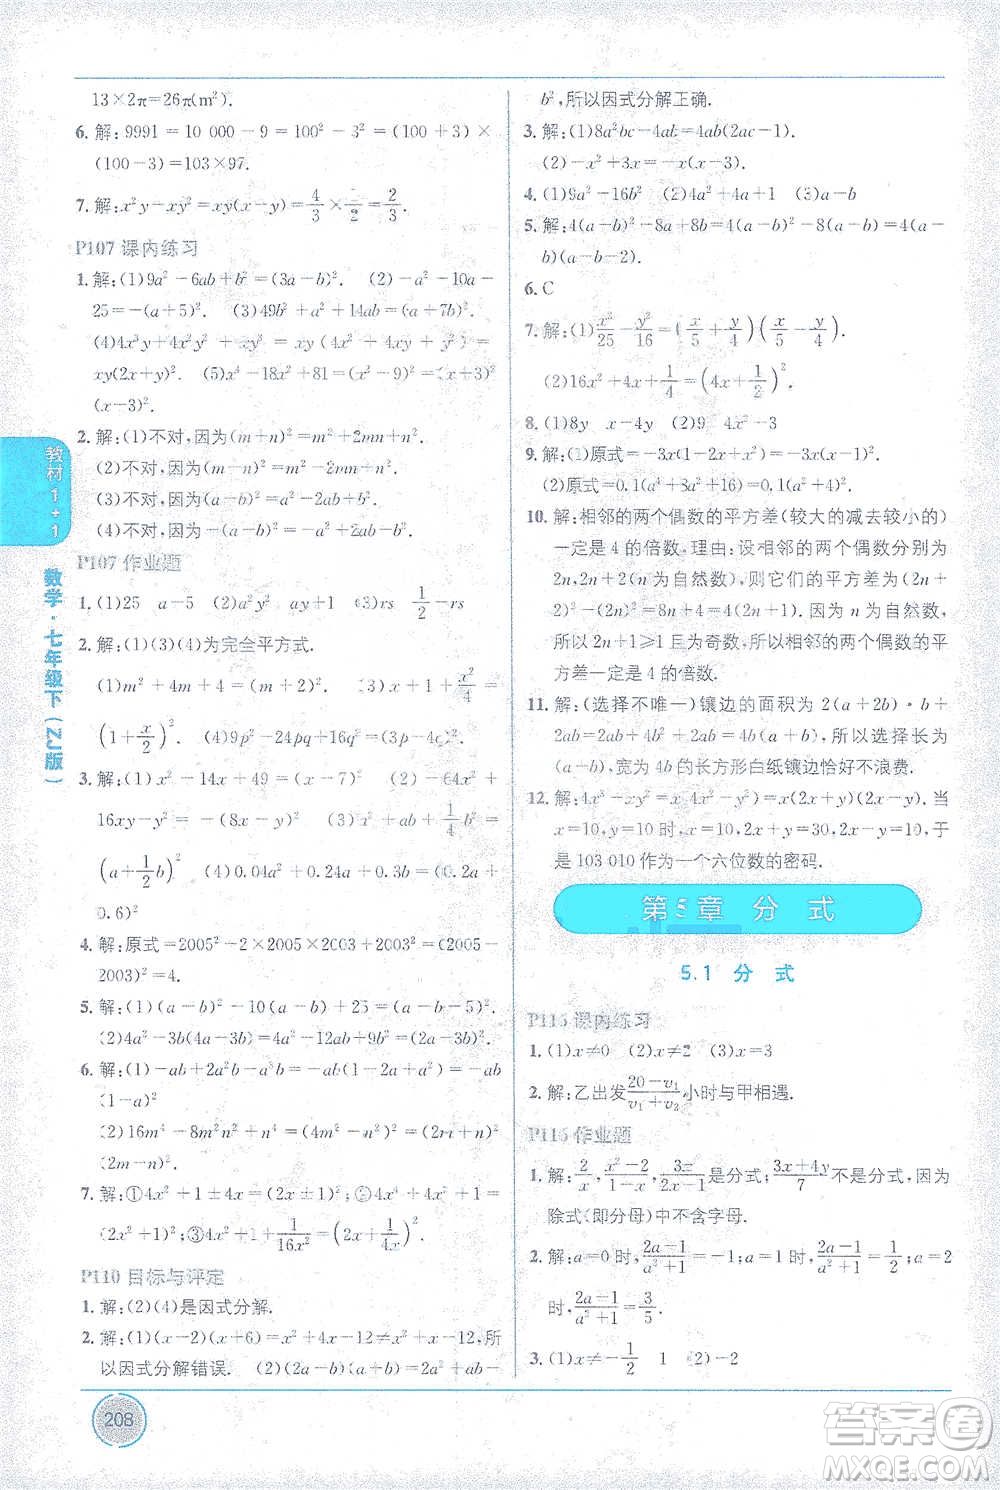 13×2π=26π(m²).
6. 解:9991=10 000-9=100²-3²=(100+3)×
(100-3)=103×97.
7. 解:x²y-xy²=xy(x-y)=4/3×1/2=2/3.
P107 课内练习
1. 解:(1)9a²-6ab+b²=(3a-b)² (2)-a²-10a-
25=-(a+5)². (3)49b²+a²+14ab=(a+7b)².
(4)4x³y+4x²y²+xy³=xy(4x²+4xy+y²)=
xy(2x+y)². (5)x⁴-18x²+81=(x²-9)²=(x+3)²
(x-3)².
2. 解:(1)不对,因为(m+n)²=m²+2mn+n².
(2)不对,因为
(3)不对,因为
(4)不对,因为
P107 作业题
1. (1)25 a-5 (2)a²y² ay+1 (3)rs 1/2-rs
2. 解:(1)(3)(4)为完全平方式.
(1)m²+4m+4=(m+2)² (3)1+x+x²/4=
(1+x/2)² (4)9p²-24pq+16q²=(3p-4q)².
3. 解:(1)x²-14x+49=(x-7)² (2)-64x²+
16xy-y²=-(8x-y)² (3)a²+ab+1/4b²=
(a+1/2b)² (4)0.04a²+0.24a+0.36=(0.2a+
0.6)²
4. 解:原式=2005²-2×2005×2003+2003²=(2005-
2003)²=4.
5. 解:(1)(a-b)²
(2)4a²-3b(4a-3b)=4a²-12ab+9b²=(2a-3b)².
6. 解:(1)-ab+2a²b-a³b=-ab(1-2a+a²)=-ab
(1-a)²
(2)16m⁴-8m²n²+n⁴=(4m²-n²)²=(2m+n)²
(2m-n)².
7. 解:①4x²+1±4x=(2x±1)²;②4x⁴+4x²+1=
(2x²+1)²;③4x²+1+1/16x²=(2x+1/4x)².
P110 目标与评定
1. 解:(2)(4)是因式分解.
2. 解:(1)(x-2)(x+6)=x²+4x-12≠x²+x-12,所
以因式分解错误. (2)(2a-b)(a+b)=2a²+ab-
教材1+1
数学·七年级下(ZJ版)
208
b²,所以因式分解正确.
3. 解:(1)8a²bc-4ab=4ab(2ac-1).
(2)-x²+3x=-x(x-3).
4. (1)9a²-16b² (2)4a²-4a+1 (3)a-b
5. 解:4(a-b)²-8a+8b=4(a-b)²-8(a-b)=4(a-
b)(a-b-2).
6. C
7. 解:(1)x²/25-y²/16=(x/5+y/4)(x/5-y/4).
(2)16x²+4x+1/4=(4x+1/2)².
8. (1)2x (2)4x-3
9. 解:(1)原式=
(2)原式=0.1(4.6+5.4)=0.1×10=1.
10. 解:相邻的两个偶数的平方差(较大的减去较小的)
一定是 4 的倍数. 理由:设相邻的两个偶数为
2n,2n+2(n为自然数),则它们的平方差为(2n+
2)²-(2n)²=8n+4=4(2n+1). 因为 n 为自然数,
所以 2n+1≥1 且为奇数,所以相邻的两个偶数的平方
差一定是 4 的倍数.
11. 解:(选择不唯一)镶边的面积为 2(a+2b)·b+
2ab=2ab+4b²+2ab=4b(a+b). 选择长为
(a+b),宽为 4b的长方形白纸镶边恰好不浪费.
12. 解:4x³-xy²=x(4x²-y²)=x(2x+y)(2x-y). 当
x=10,y=10时,x=10,2x+y=30,2x-y=10,于
是 103 010 作为一个六位数的密码.
第5章 分 式
5.1 分 式
P115 课内练习
1. (1)x≠0 (2)x≠2 (3)x=3
2. 解:乙出发20-v₁/v₁+v₂小时与甲相遇.
P115 作业题
1. 解:2/x,x²-2/x²-1,3x/2x-1是分式,3x+4y/7不是分式,因为
除式(即分母)中不含字母.
2. 解:a=0时,2a-1/a²+1=-1;a=1时,2a-1/a²+1=1/2;a=2
时,2a-1/a²+1=3/5.
3. (1)x≠-1/2 1 (2)-2
答案圈
MXQE.COM